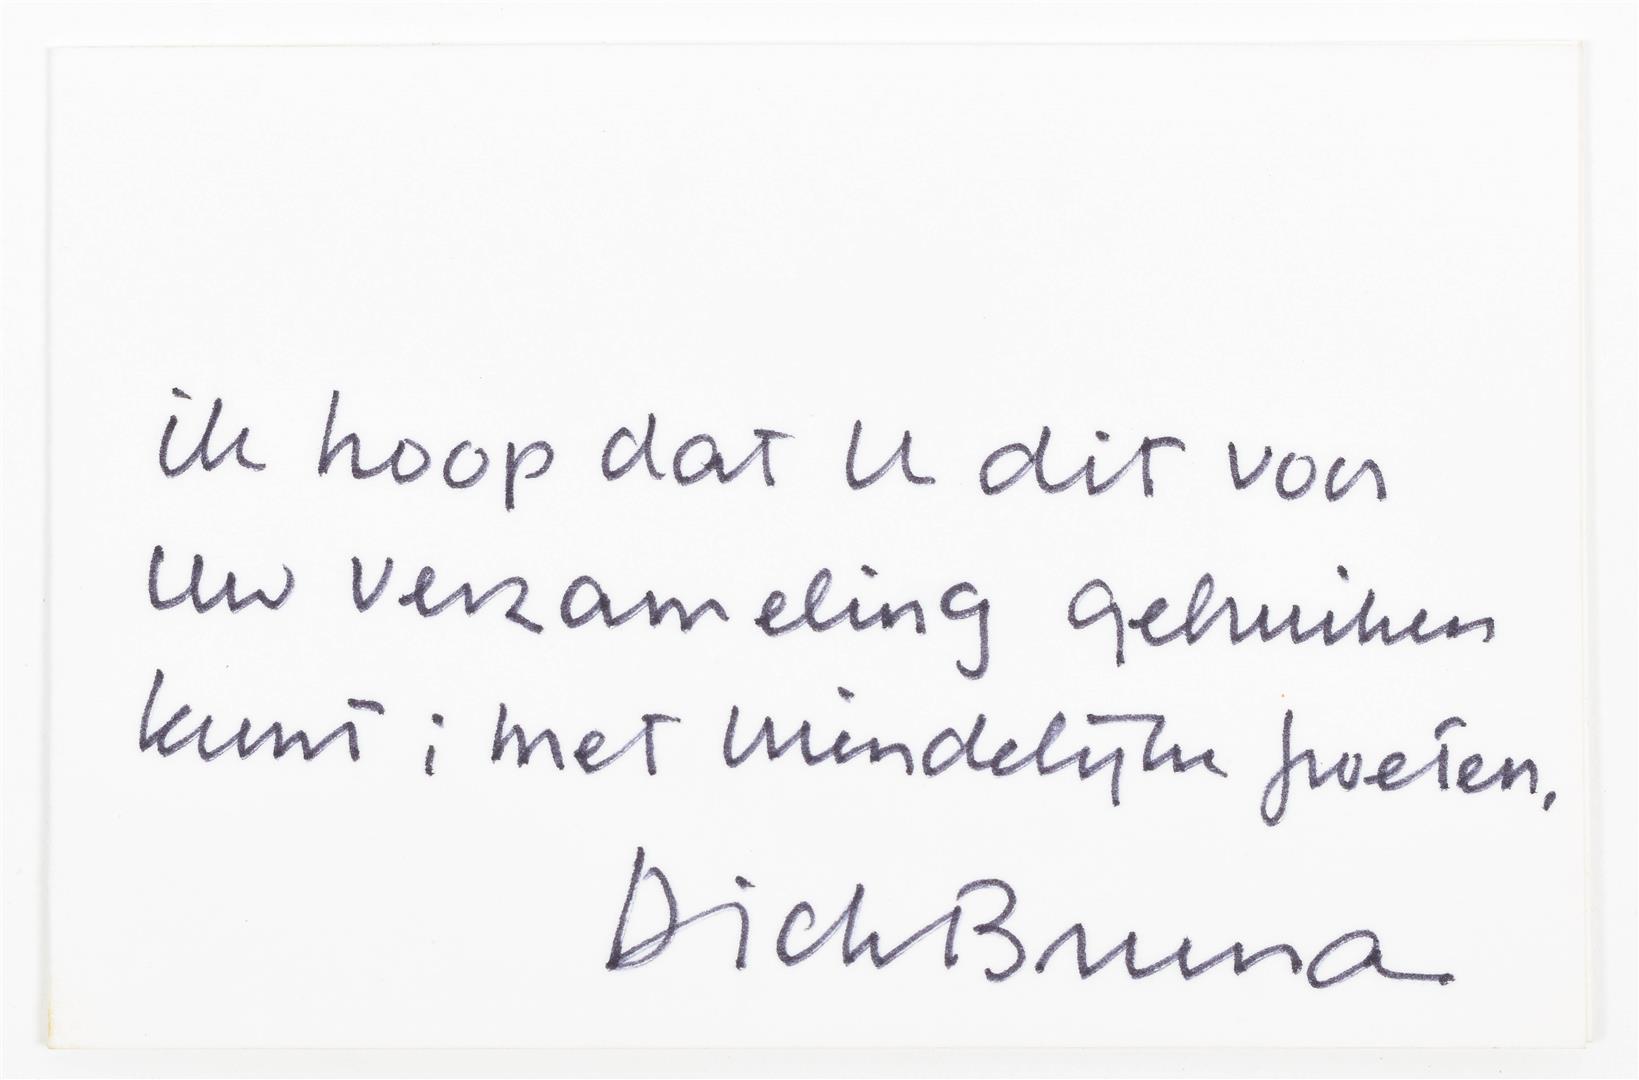 ik hoop dat u dit voor
uw verzameling gebruiken
kunt; met vriendelijke groeten.
Dick Bruna